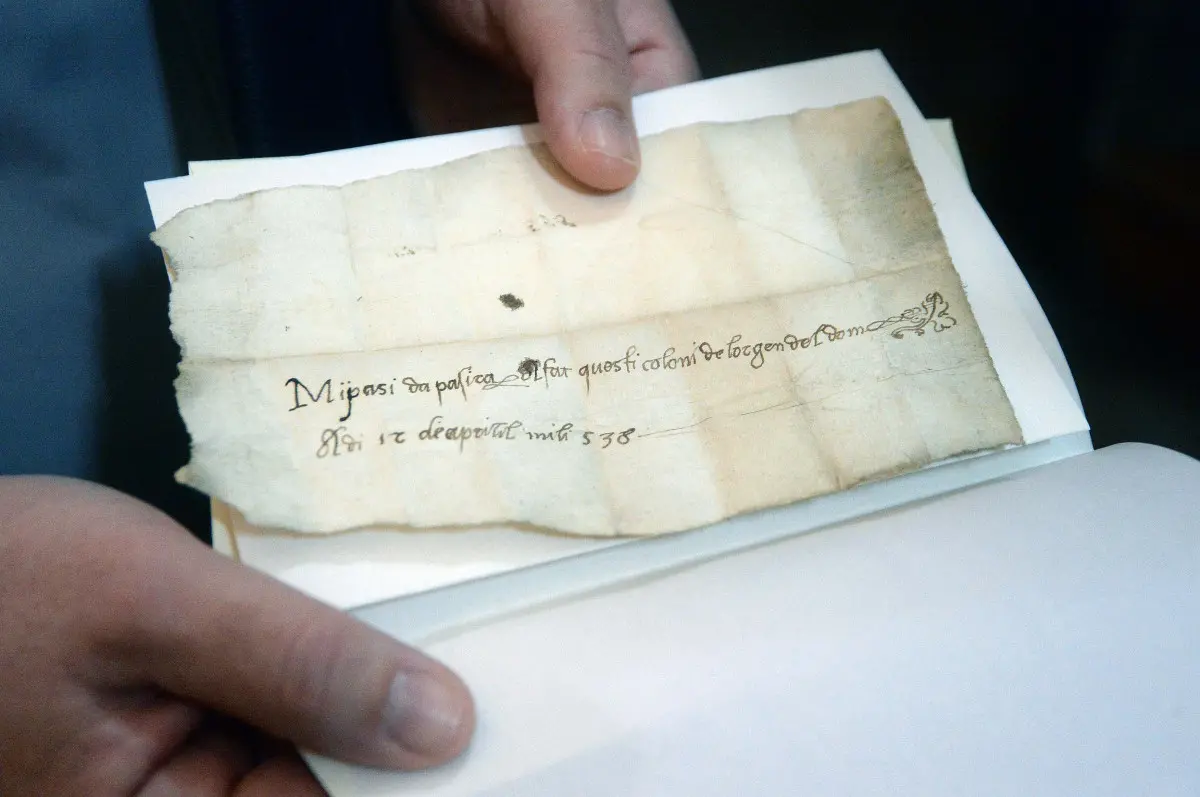 Mi pasi da pasira dl far questi coloni de lorgen del dom
Adi 12 de apriil mili 538